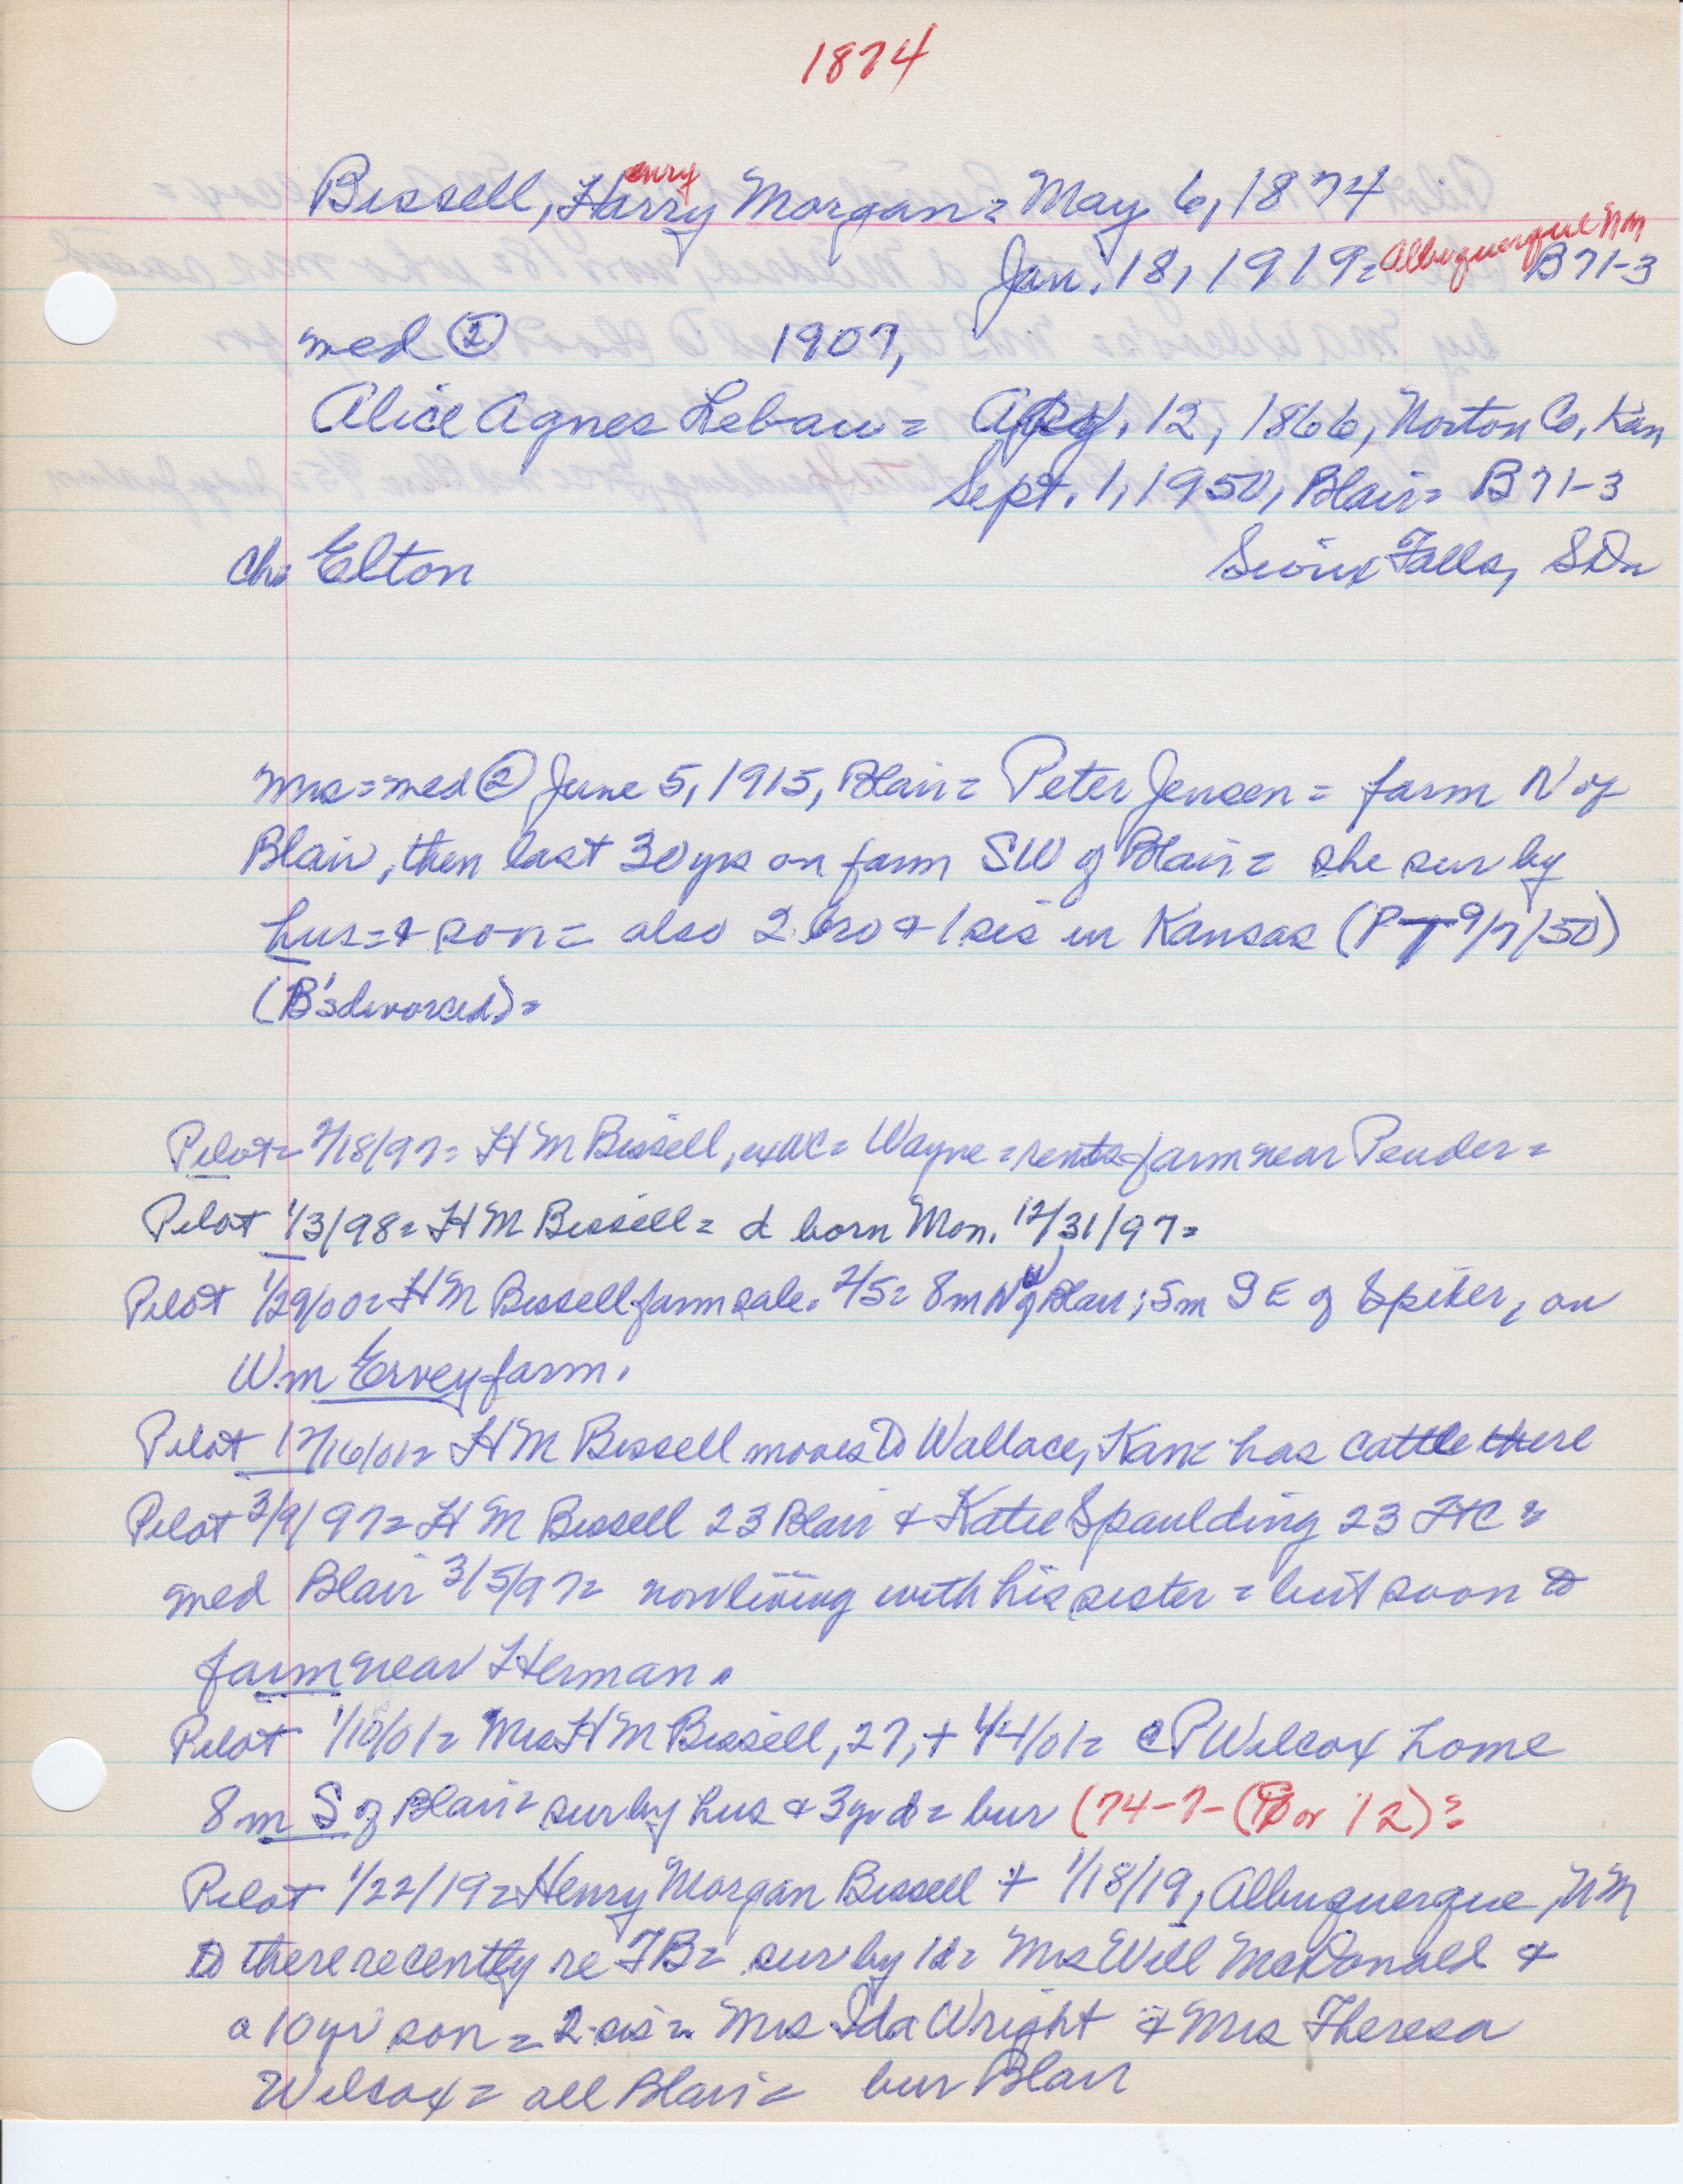 1874
enry
Bissell, Harry Morgan = May 6, 1874
Jan. 18, 1919 = Albuquerque NM B71-3
med ② 1907,
Alice Agnes Lebau = 12, 1866, Norton Co, Kan
Sept. 1, 1950, Blair = B71-3
ch = Elton Sioux Falls, SD =
Mrs = med ② June 5, 1915, Blair = Peter Jensen = farm N of
Blair, then last 30 yrs on farm SW of Blair = she sur by
hus = & son = also 2 bro & 1 sis in Kansas (PT 9/7/50)
(B's divorced) =
Pilot = 2/18/97 = H M Bissell, = Wayne = rents farm near Pender =
Pilot 1/3/98 = H M Bissell = d born Mon. 12/31/97 =
Pilot 1/29/00 = H M Bissell farm sale = 2/5 = 8 m NW of Blair; 5 m SE of Spiker, on
Wm Ervey farm.
Pilot 12/16/01 = H M Bissell moves to Wallace, Kan = has cattle there
Pilot 3/9/97 = H M Bissell 23 Blair & Katie Spaulding 23 FtC =
med Blair 3/5/97 = now living with his sister = but soon to
farm near Herman.
Pilot 1/10/01 = Mrs H M Bissell, 27, + 1/4/01 = C P Wilcox home
8 m S of Blair = sur by hus & 3 yr d = bur (74-7- or 12) =
Pilot 1/22/19 = Henry Morgan Bissell + 1/18/19, Albuquerque, NM
to there recently re TB = sur by 1d = Mrs Will McDonald &
a 10 yr son = 2 sis = Mrs Ida Wright & Mrs Theresa
Wilcox = all Blair = bur Blair